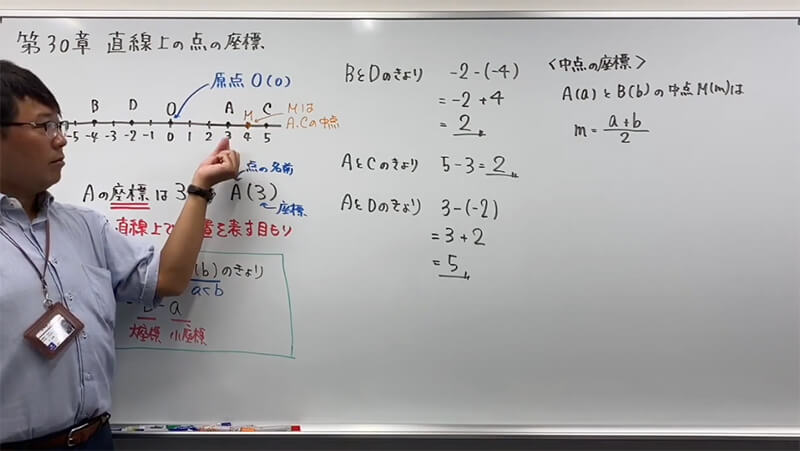 第30章 直線上の点の座標
原点 O(0)
B D O A M C
Mは
A、Cの中点
-5 -4 -3 -2 -1 0 1 2 3 4 5
点の名前
Aの座標は3 A(3)
座標
直線上で 置を表す目もり
(b)のきょり
a<b
- a
大座標 小座標
BとDのきょり -2-(-4)
= -2+4
= 2
AとCのきょり 5-3=2
AとDのきょり 3-(-2)
= 3+2
= 5
<中点の座標>
A(a)とB(b)の中点M(m)は
m = a+b/2